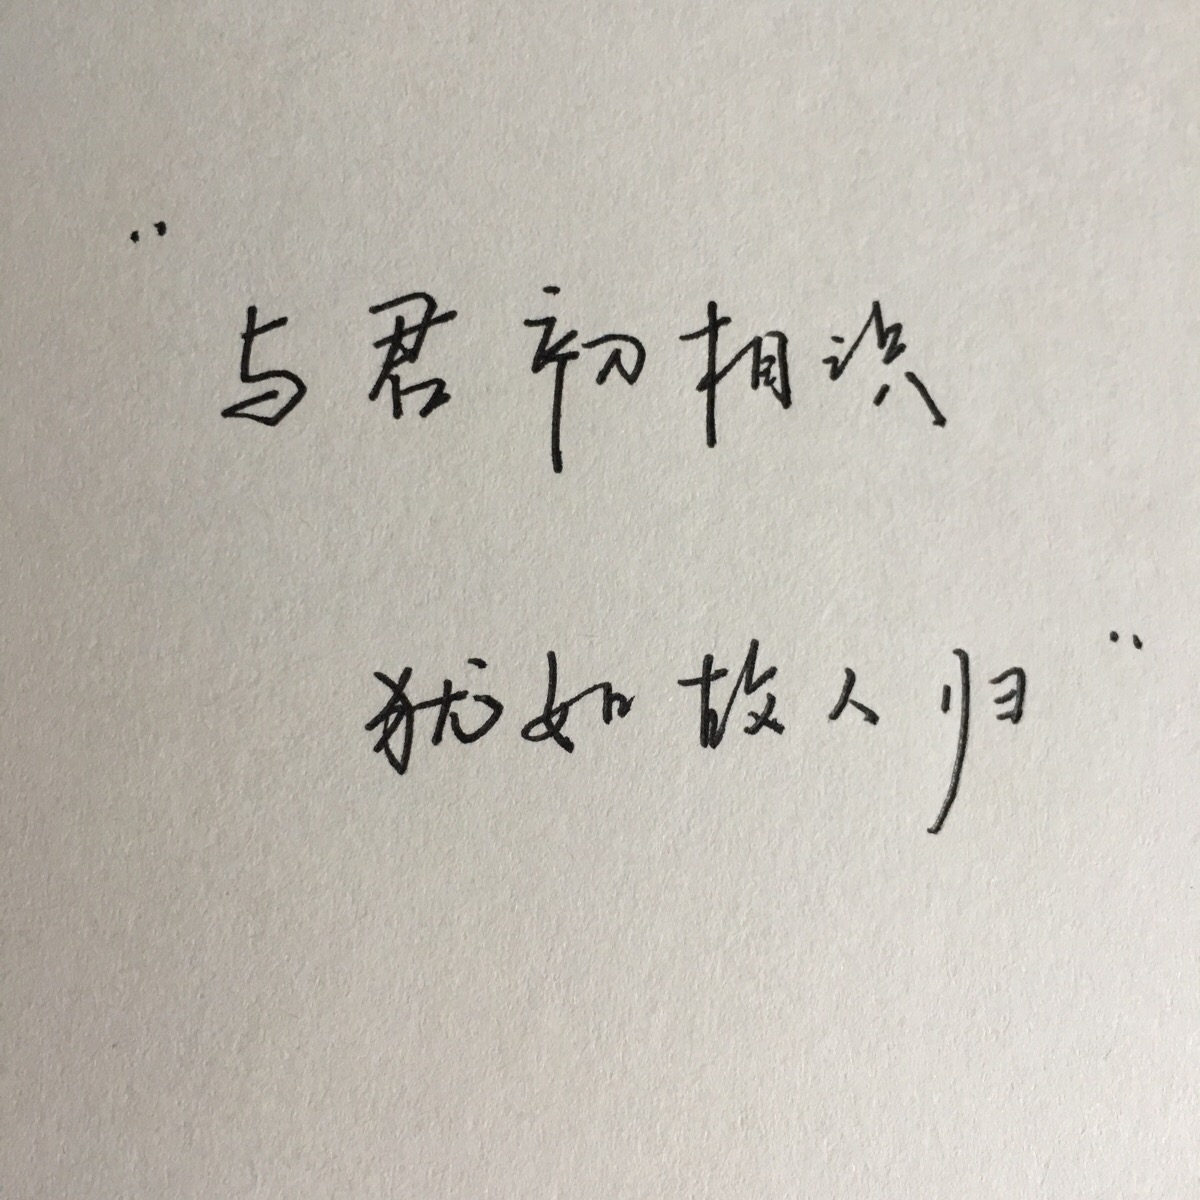 "与君初相识
犹如故人归"